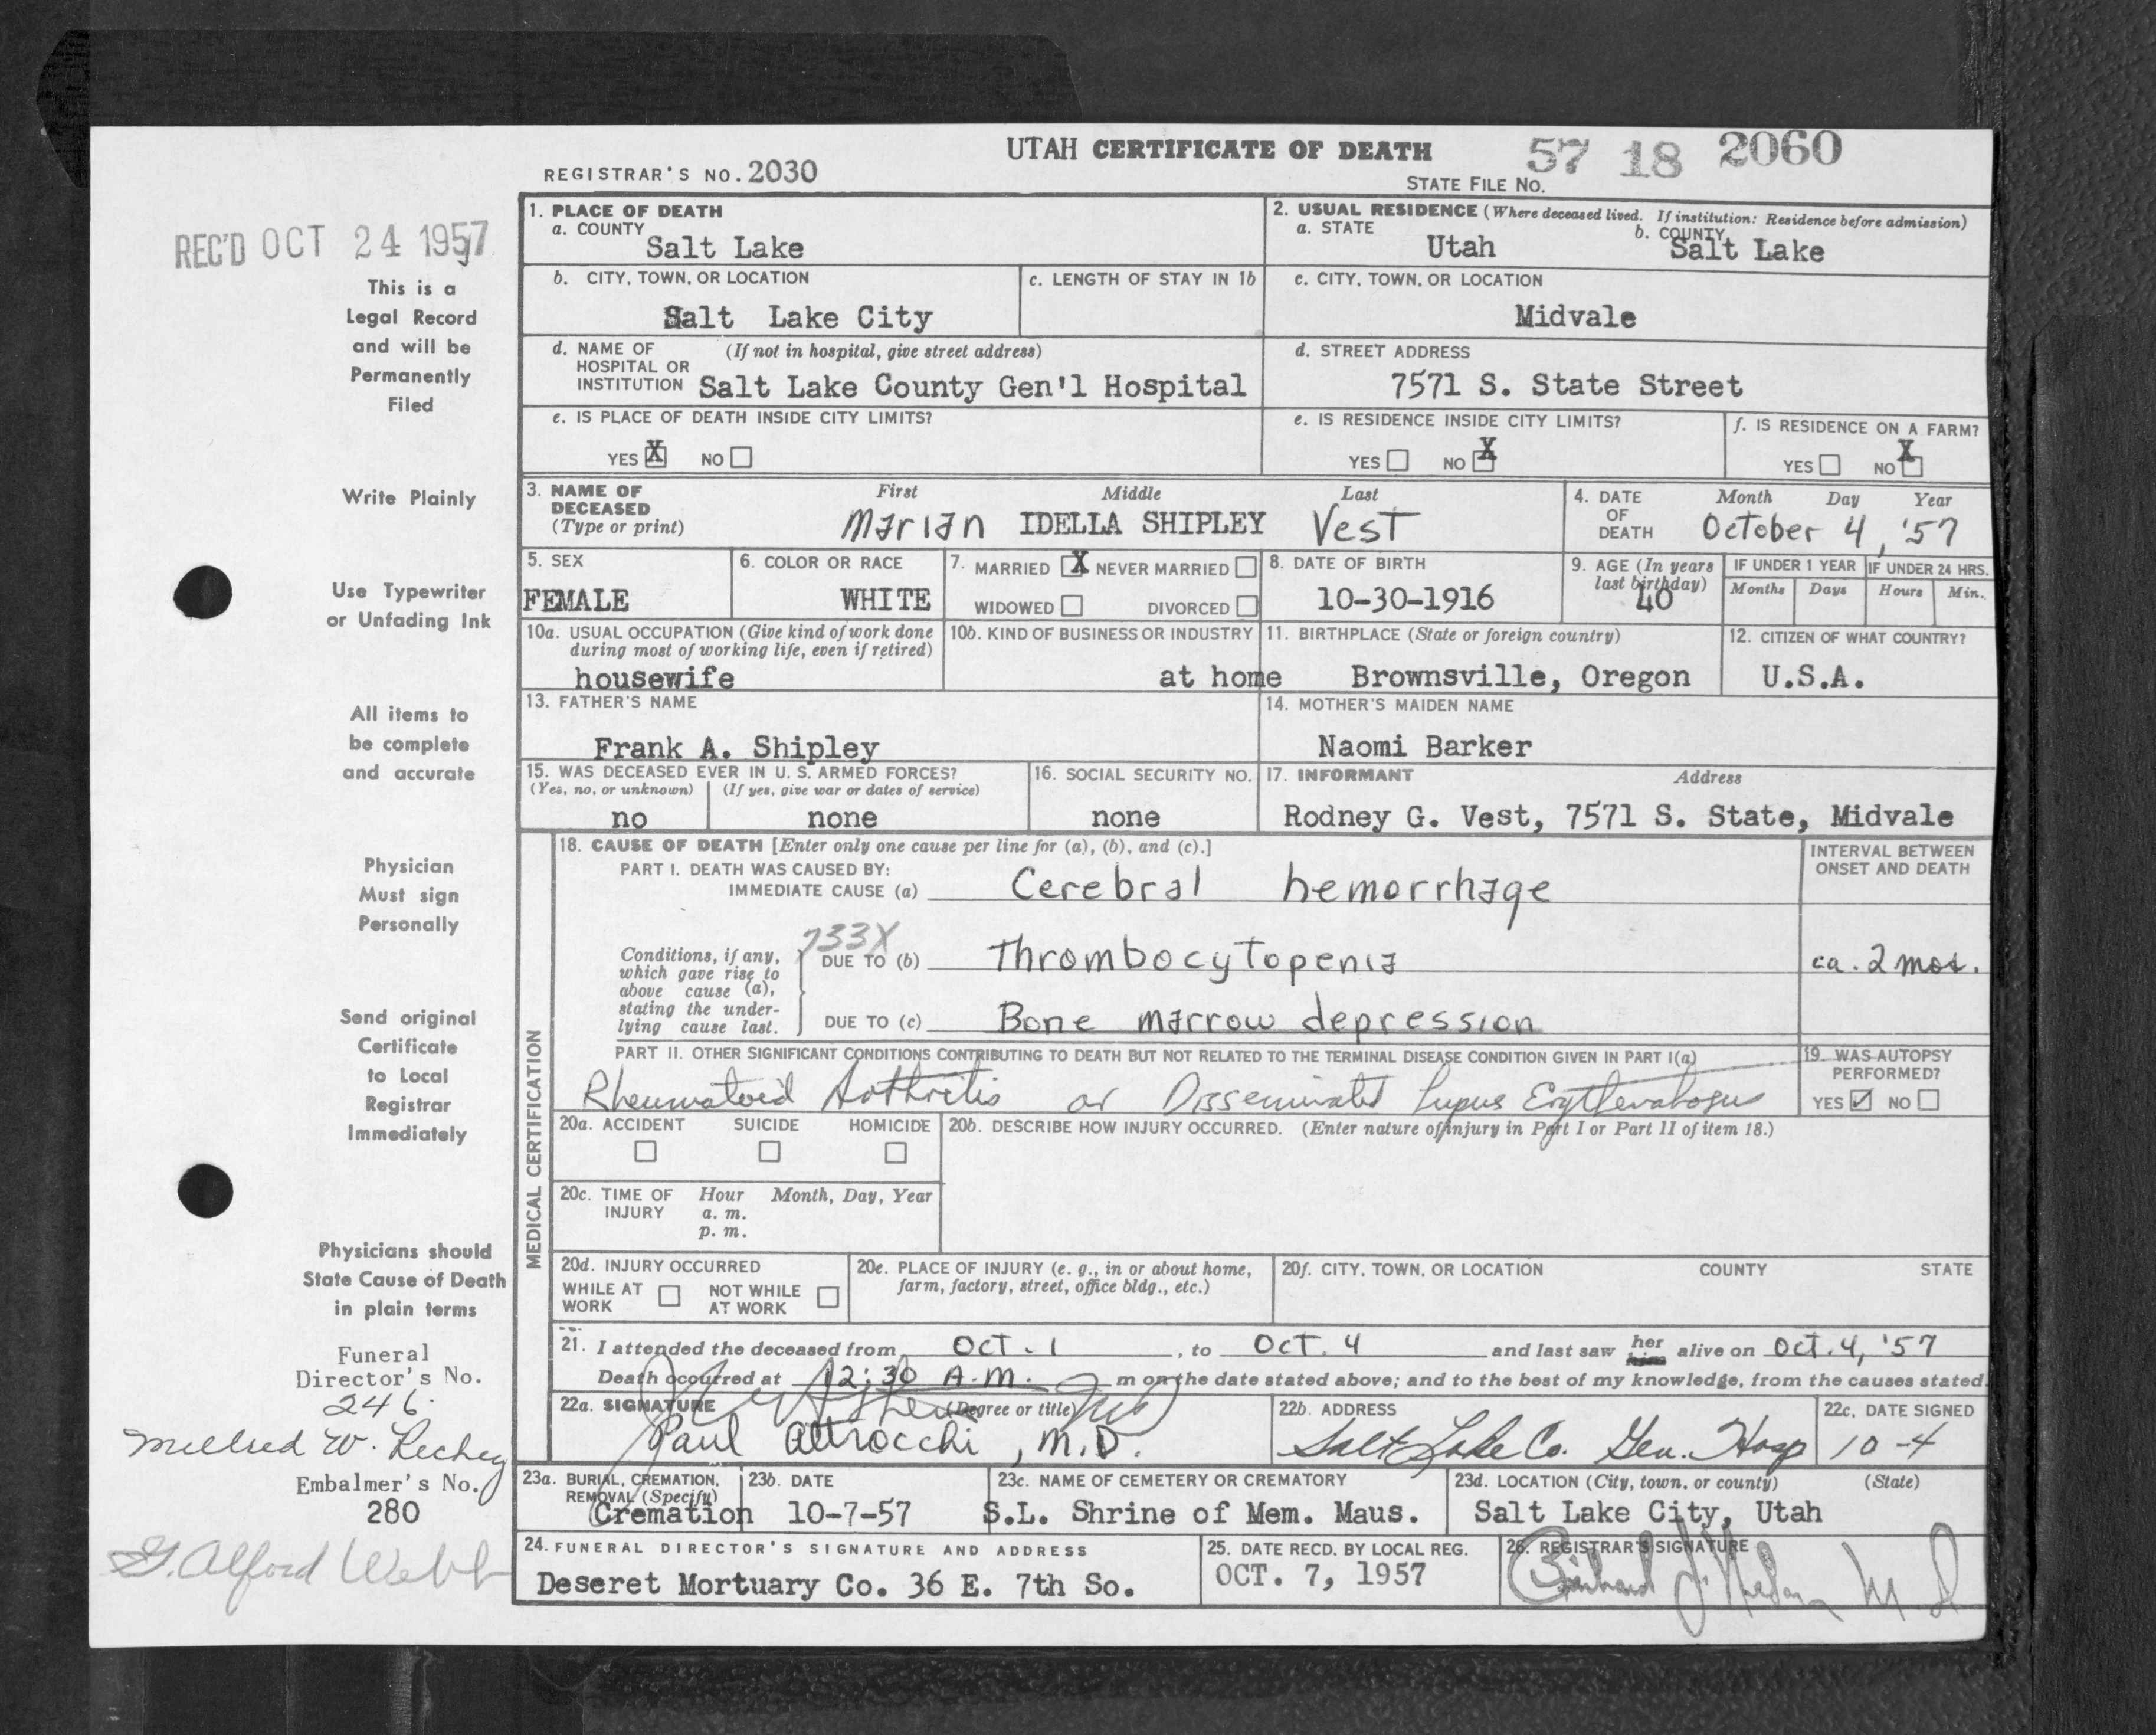 UTAH CERTIFICATE OF DEATH
REGISTRAR'S NO. 2030
STATE FILE NO. 57 18 2060
REC'D OCT 24 1957
This is a
Legal Record
and will be
Permanently
Filed
Write Plainly
Use Typewriter
or Unfading Ink
All items to
be complete
and accurate
Physician
Must sign
Personally
Send original
Certificate
to Local
Registrar
Immediately
Physicians should
State Cause of Death
in plain terms
Funeral
Director's No.
246
Embalmer's No.
280
G. Alford Webb
1. PLACE OF DEATH
a. COUNTY
Salt Lake
2. USUAL RESIDENCE (Where deceased lived. If institution: Residence before admission)
a. STATE
Utah
b. COUNTY
Salt Lake
b. CITY, TOWN, OR LOCATION
Salt Lake City
c. LENGTH OF STAY IN 1b
c. CITY, TOWN, OR LOCATION
Midvale
d. NAME OF (If not in hospital, give street address)
HOSPITAL OR
INSTITUTION Salt Lake County Gen'l Hospital
d. STREET ADDRESS
7571 S. State Street
e. IS PLACE OF DEATH INSIDE CITY LIMITS?
YES X NO
e. IS RESIDENCE INSIDE CITY LIMITS?
YES NO X
f. IS RESIDENCE ON A FARM?
YES NO X
3. NAME OF DECEASED (Type or print)
First Middle Last
Marian IDELLA SHIPLEY Vest
4. DATE OF DEATH
Month Day Year
October 4, '57
5. SEX
FEMALE
6. COLOR OR RACE
WHITE
7. MARRIED X NEVER MARRIED
WIDOWED DIVORCED
8. DATE OF BIRTH
10-30-1916
9. AGE (In years last birthday)
40
IF UNDER 1 YEAR
Months Days
IF UNDER 24 HRS.
Hours Min.
10a. USUAL OCCUPATION (Give kind of work done
during most of working life, even if retired)
housewife
10b. KIND OF BUSINESS OR INDUSTRY
at home
11. BIRTHPLACE (State or foreign country)
Brownsville, Oregon
12. CITIZEN OF WHAT COUNTRY?
U.S.A.
13. FATHER'S NAME
Frank A. Shipley
14. MOTHER'S MAIDEN NAME
Naomi Barker
15. WAS DECEASED EVER IN U. S. ARMED FORCES?
(Yes, no, or unknown) (If yes, give war or dates of service)
no none
16. SOCIAL SECURITY NO.
none
17. INFORMANT Address
Rodney G. Vest, 7571 S. State, Midvale
MEDICAL CERTIFICATION
18. CAUSE OF DEATH [Enter only one cause per line for (a), (b), and (c).]
INTERVAL BETWEEN
ONSET AND DEATH
PART I. DEATH WAS CAUSED BY:
IMMEDIATE CAUSE (a) Cerebral hemorrhage
733X
Conditions, if any,
which gave rise to
above cause (a),
stating the under-
lying cause last.
DUE TO (b) Thrombocytopenia
ca. 2 mos.
DUE TO (c) Bone marrow depression
PART II. OTHER SIGNIFICANT CONDITIONS CONTRIBUTING TO DEATH BUT NOT RELATED TO THE TERMINAL DISEASE CONDITION GIVEN IN PART I(a)
Rheumatoid Arthritis or Disseminated Lupus Erythematosus
19. WAS AUTOPSY
PERFORMED?
YES ✓ NO
20a. ACCIDENT SUICIDE HOMICIDE
20b. DESCRIBE HOW INJURY OCCURRED. (Enter nature of injury in Part I or Part II of item 18.)
20c. TIME OF INJURY
Hour Month, Day, Year
a. m.
p. m.
20d. INJURY OCCURRED
WHILE AT WORK NOT WHILE AT WORK
20e. PLACE OF INJURY (e. g., in or about home,
farm, factory, street, office bldg., etc.)
20f. CITY, TOWN, OR LOCATION COUNTY STATE
21. I attended the deceased from Oct. 1, to Oct. 4 and last saw her him alive on Oct. 4, '57
Death occurred at 12:30 A.M. m on the date stated above; and to the best of my knowledge, from the causes stated.
22a. SIGNATURE (Degree or title)
Paul Altrocchi, M.D.
22b. ADDRESS
Salt Lake Co. Gen. Hosp
22c. DATE SIGNED
10-4
23a. BURIAL, CREMATION,
REMOVAL (Specify)
Cremation
23b. DATE
10-7-57
23c. NAME OF CEMETERY OR CREMATORY
S.L. Shrine of Mem. Maus.
23d. LOCATION (City, town, or county) (State)
Salt Lake City, Utah
24. FUNERAL DIRECTOR'S SIGNATURE AND ADDRESS
Deseret Mortuary Co. 36 E. 7th So.
25. DATE RECD. BY LOCAL REG.
OCT. 7, 1957
26. REGISTRAR'S SIGNATURE